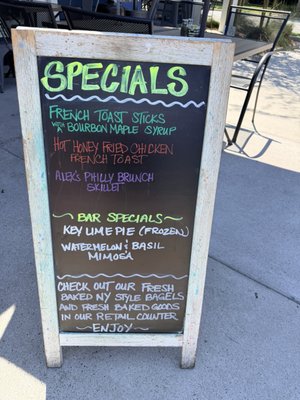 SPECIALS
FRENCH TOAST STICKS
WITH A BOURBON MAPLE SYRUP
HOT HONEY FRIED CHICKEN
FRENCH TOAST
ALEX'S PHILLY BRUNCH
SKILLET
~ BAR SPECIALS ~
KEY LIME PIE (FROZEN)
WATERMELON & BASIL
MIMOSA
CHECK OUT OUR FRESH
BAKED NY STYLE BAGELS
AND FRESH BAKED GOODS
IN OUR RETAIL COUNTER
~ENJOY~